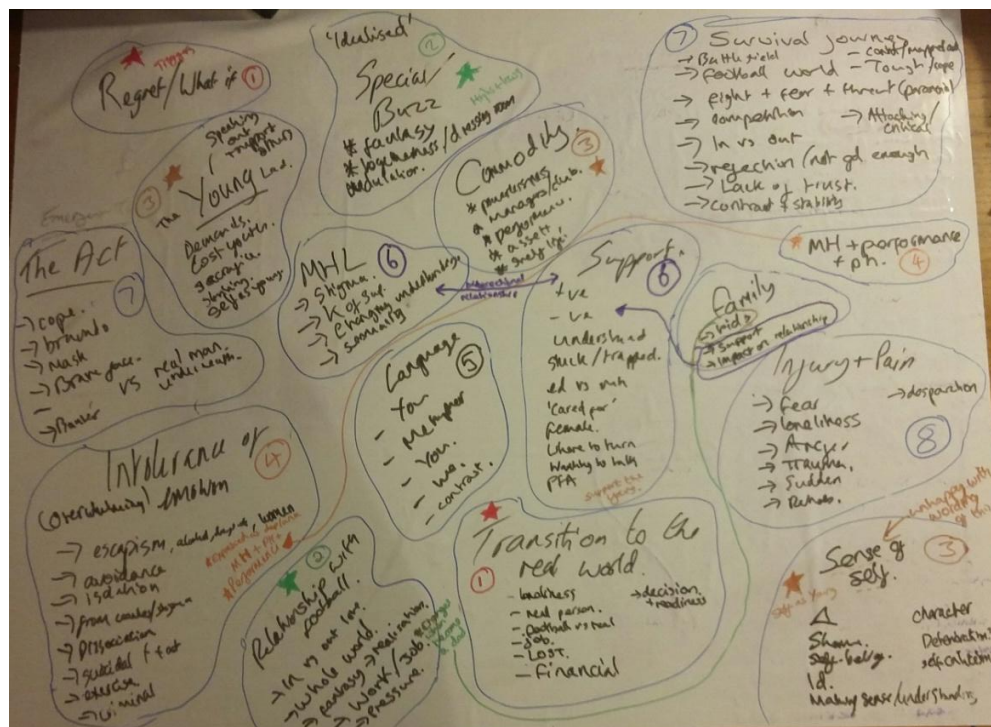 Regret/What if
Triggers
1
'Idealised'
2
Special
Buzz
Highs + lows
* fantasy
* togetherness/dressing room
adulation.
7 Survival Journey
→ Battlefield
→ football world
- Tough/cope
→ fight + fear + threat (paranoid)
→ competition
→ Attacking/
critical
→ In vs out
→ rejection/not gd enough
→ Lack of trust.
→ contract & stability
Speaking
out
support
others
3
The Young Lad.
Demands.
Lost youth.
sacrifice.
Self as young
Commodity.
3
* powerlessness
managers/club.
* performance.
a
* asset
* shelf life
MH + performance
+ ph.
4
Emerges
The Act
7
→ cope.
→ bravado
→ Mask
→ Brave face.
vs real man.
underneath.
→ Banter
MHL
6
→ Stigma.
→ K of sup.
→ Changing understandings
→ sexuality
bidirectional
relationship
Support.
6
+ve
- ve
understood
stuck/trapped.
ed vs meh
'Cared for'
female.
Where to turn
Wanting to talk
PFA
Support the
young.
family
→ kids
→ Support
→ impact on relationship
Language
5
- You
- Metaphor
- You.
- we.
- contrast.
Injury + Pain
→ fear
→ loneliness
→ desperation
→ Anger
→ Trauma.
→ Sudden
→ Rehab.
8
Intolerance of
4
(overwhelming) emotion
→ escapism, alcohol, drugs, women
→ avoidance
→ isolation
→ from coaches/stigma
→ Dissociation
→ suicidal
→ exercise
→ criminal
MH + ph.
* Performance
2
Relationship with
football.
→ In vs out love.
→ Whole world.
→ fantasy → realisation.
→ Work/Job.
→ pressure.
Transition to the
real world.
1
- loneliness
→ decision
+ readiness
- real person.
- football vs real
- job.
- LOST.
- financial
unhappy with
wording
of this
Sense of
self.
3
Self as Young
character
Shame.
Self-being.
Id.
Making sense/understanding